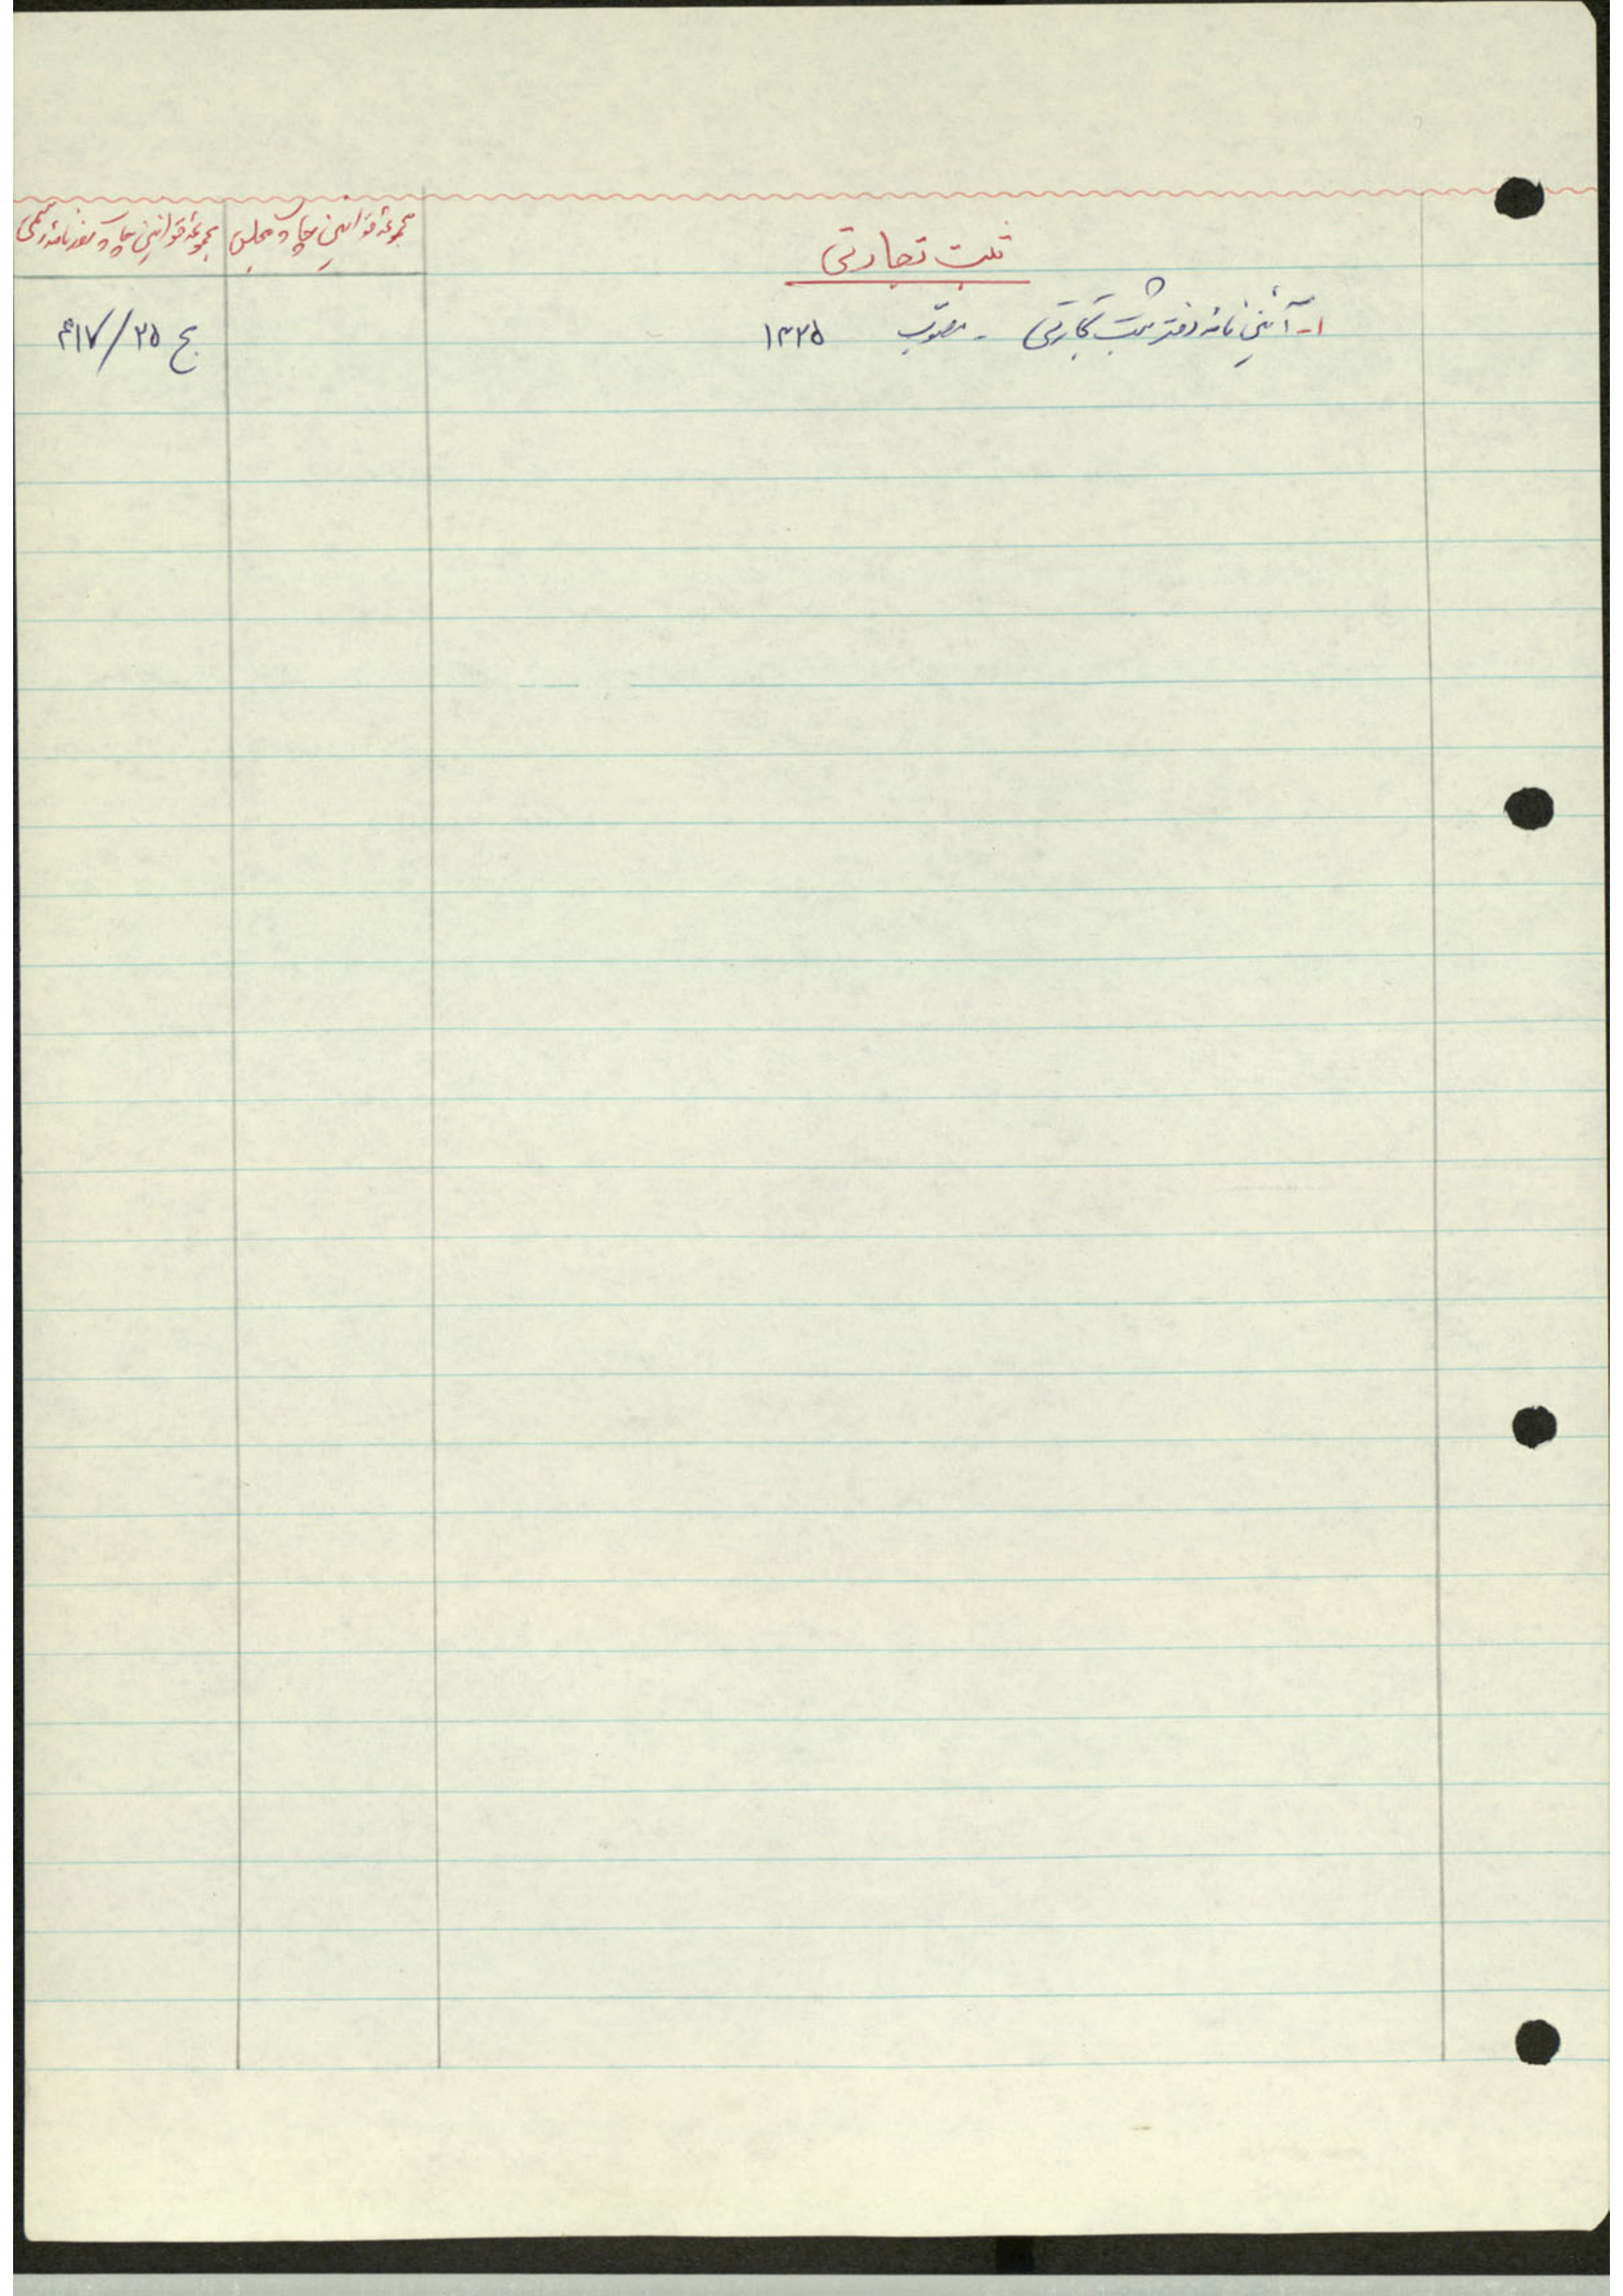 ثبت تجارتی
مجموعه قوانین چاپ مجلس
مجموعه قوانین چاپ روزنامه رسمی
۱- آئین نامه دفتر ثبت تجارتی - مصوب ۱۳۲۵
ج ۲۵/۴۱۷